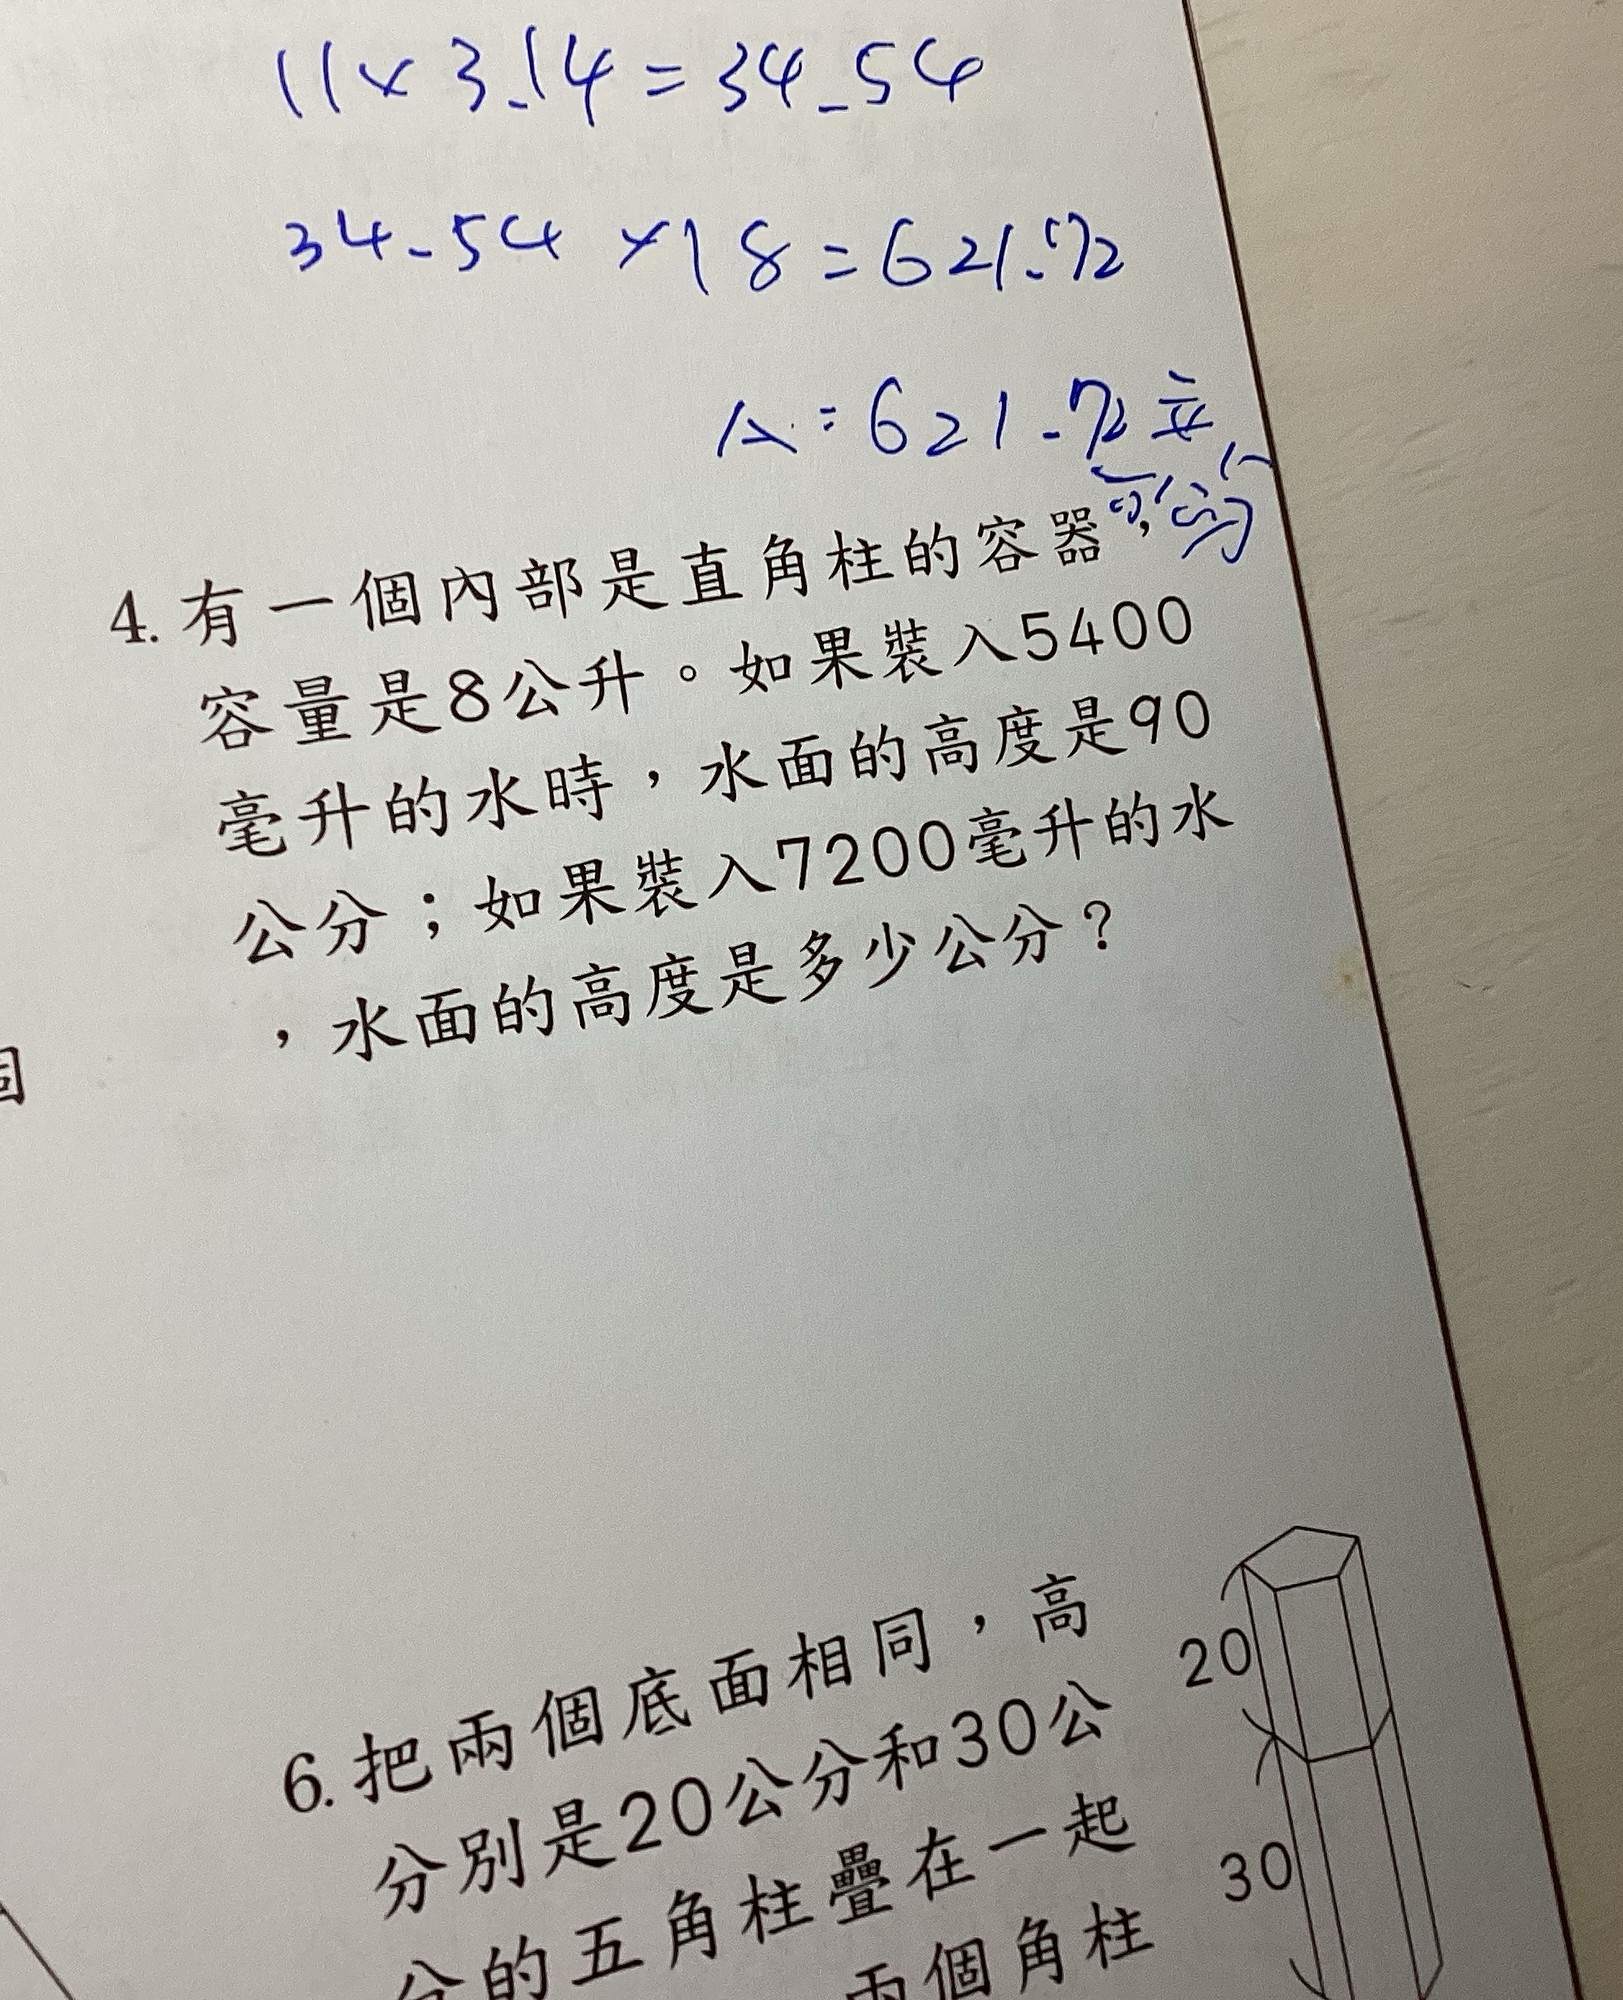 11×3.14=34.54
34.54×18=621.72
A:621.72立
方公分
4. 有一個內部是直角柱的容器，
容量是8公升。如果裝入5400
毫升的水時，水面的高度是90
公分；如果裝入7200毫升的水
，水面的高度是多少公分？
6. 把兩個底面相同，高
分別是20公分和30公
分的五角柱疊在一起
兩個角柱
20
30